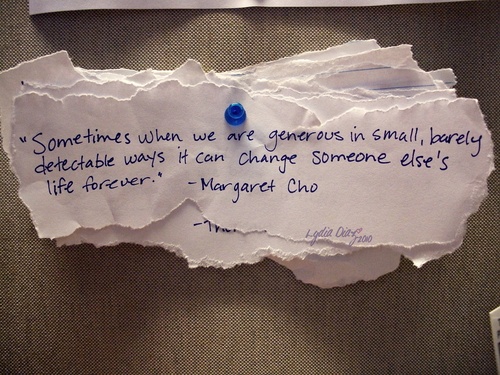 "Sometimes when we are generous in small, barely
detectable ways it can change someone else's
life forever." -Margaret Cho
Lydia Diaz
2010